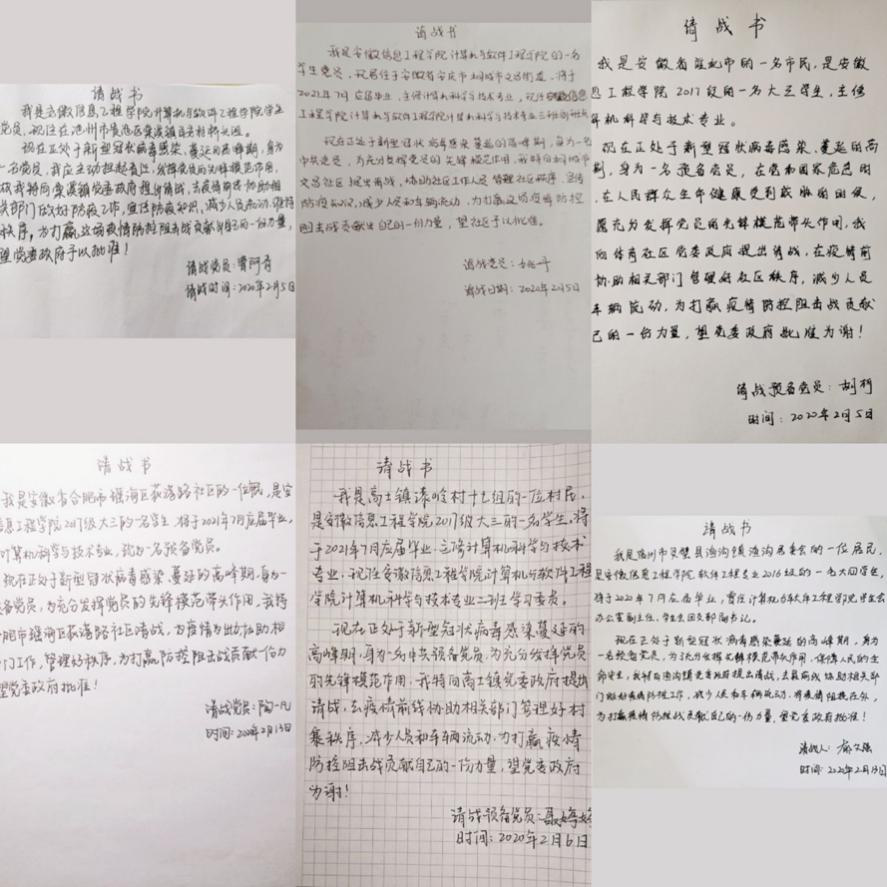 请战书
我是安徽信息工程学院计算机与软件工程学院学生
党员,现住在池州市贵池区
现在正处于新型冠状病毒感染,蔓延的高峰期,身为
一名党员,我应主动担起责任,发挥党员的先锋模范作用,
故我特向棠溪镇党委政府提出请战,去疫情前线协助相
关部门做好防疫工作,宣传防疫知识,减少人员流动,维持
秩序,为打赢这场疫情防控阻击战贡献自己的一份力量,
望党委政府予以批准!
请战党员:曹阿奇
请战时间:2020年2月5日
请战书
我是安徽信息工程学院计算机与软件工程学院的一名
学生党员,现居住于安徽省安庆市桐城市文昌街道,将于
2021年7月应届毕业,主修计算机科学与技术专业,现任安徽信息
工程学院计算机与软件工程学院计算机科学与技术专业三班
现在正处于新型冠状病毒蔓延的高峰期,身为一名
中共党员,为充分发挥党员的先锋模范作用,我特向桐城市
文昌社区提出请战,协助社区工作人员管理社区秩序,宣传
防疫知识,减少人员和车辆流动,为打赢这场疫情防控
阻击战贡献出自己的一份力量,望社区予以批准。
请战党员:
请战日期:2020年2月5日
请战书
我是安徽省淮北市的一名市民,是安徽
息工程学院2017级的一名大三学生,主修
算机科学与技术专业。
现在正处于新型冠状病毒感染,蔓延的高
期,身为一名预备党员,在党和国家危急时
,在人民群众生命健康受到威胁的时候,
应充分发挥党员的先锋模范带头作用,我
向体育社区党委政府提出请战,在疫情前
协助相关部门管理好社区秩序,减少人员
车辆流动,为打赢疫情防控阻击战贡献
己的一份力量,望党委政府批准为谢!
请战预备党员:胡柯
时间:2020年2月5日
请战书
我是安徽省合肥市瑶海区荻港路社区的一位居民,是安
信息工程学院2017级大三的一名学生,将于2021年7月应届毕业,
计算机科学与技术专业,现为一名预备党员。
现在正处于新型冠状病毒感染,蔓延的高峰期,身为一
备党员,为充分发挥党员的先锋模范带头作用,我特
肥市瑶海区荻港路社区请战,为疫情为出协助相
门工作,管理好秩序,为打赢防控阻击战贡献一份力
望党委政府批准!
请战党员:陶一凡
时间:2020年2月13日
请战书
我是高土镇漆岭村十七组的一位村民,
是安徽信息工程学院2017级大三的一名学生,将
于2021年7月应届毕业,主修计算机科学与技术
专业,现任安徽信息工程学院计算机与软件工程
学院计算机科学与技术专业二班学习委员。
现在正处于新型冠状病毒感染蔓延的
高峰期,身为一名中共预备党员,为充分发挥党员
的先锋模范作用,我特向高土镇党委政府提出
请战,去疫情前线协助相关部门管理好村
寨秩序,减少人员和车辆流动,为打赢疫情
防控阻击战贡献自己的一份力量,望党委政府
为谢!
请战预备党员:聂婷婷
时间:2020年2月6日
请战书
我是宿州市灵璧县浍沟镇浍沟居委会的一位居民,
是安徽信息工程学院软件工程专业2016级的一名大四学生,
将于2020年7月应届毕业,曾任计算机与软件工程学院学生会
办公室副主任,学生党支部副书记。
现在正处于新型冠状病毒感染蔓延的高峰期,身为
一名预备党员,为了充分发挥先锋模范带头作用,保障人民的生
命安全,我特向浍沟镇党委政府提出请战,去最前线协助相关部
门做好疫情防控工作,减少人员和车辆流动,将疫情阻挡在外,
为打赢疫情防控战贡献自己的一份力量,望党委政府批准!
请战人:
时间:2020年2月13日